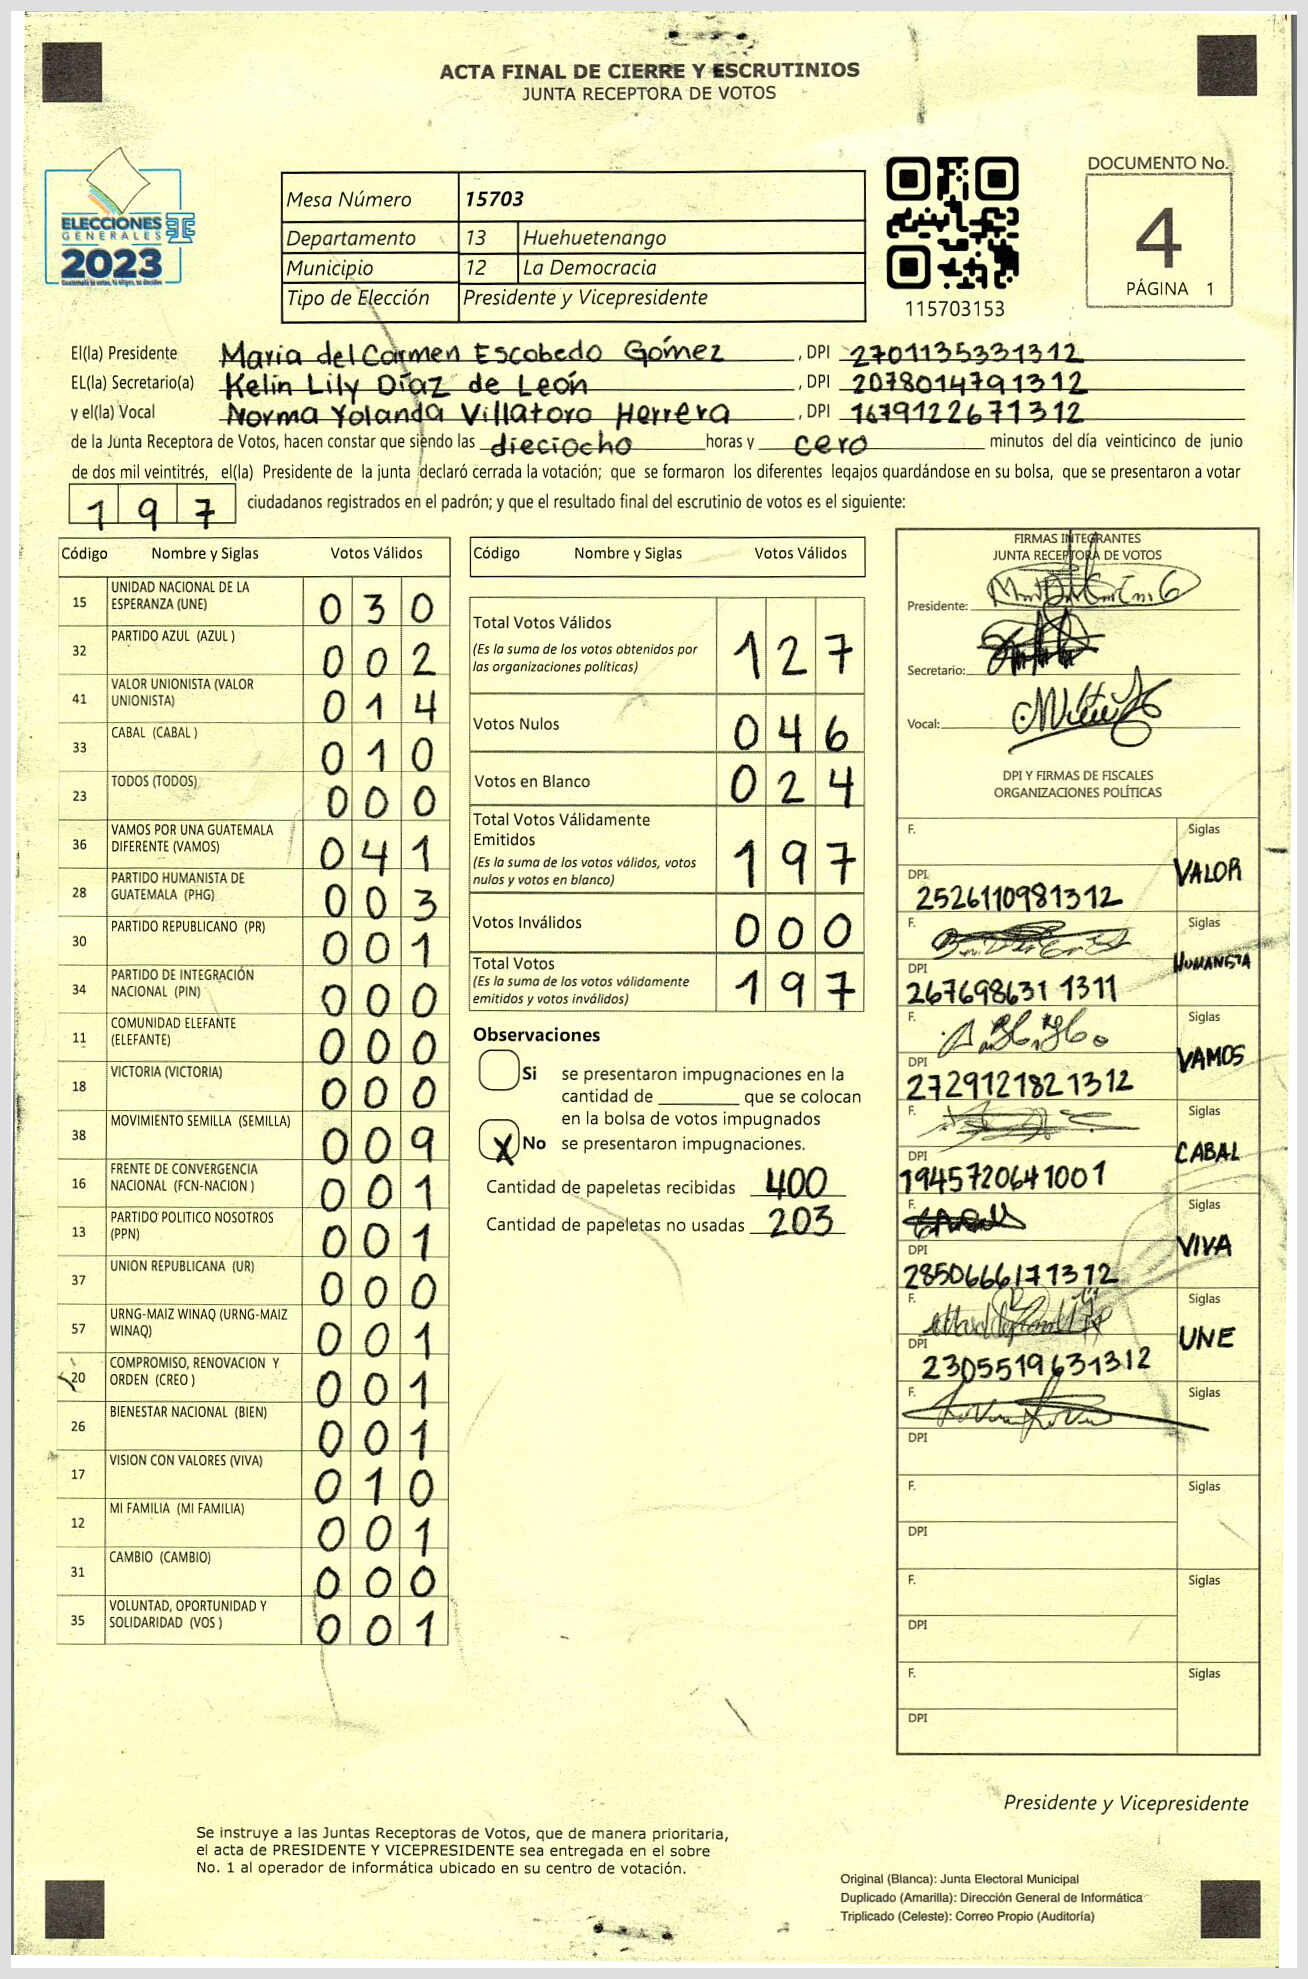 ACTA FINAL DE CIERRE Y ESCRUTINIOS
JUNTA RECEPTORA DE VOTOS
ELECCIONES
GENERALES
2023
Mesa Número 15703
Departamento 13 Huehuetenango
Municipio 12 La Democracia
Tipo de Elección Presidente y Vicepresidente
115703153
DOCUMENTO No.
4
PÁGINA 1
El(la) Presidente Maria del Carmen Escobedo Gómez , DPI 2701135331312
EL(la) Secretario(a) Kelin Lily Díaz de León , DPI 2078014791312
y el(la) Vocal Norma Yolanda Villatoro Herrera , DPI 1679122671312
de la Junta Receptora de Votos, hacen constar que siendo las dieciocho horas y cero minutos del día veinticinco de junio
de dos mil veintitrés, el(la) Presidente de la junta declaró cerrada la votación; que se formaron los diferentes legajos guardándose en su bolsa, que se presentaron a votar
197 ciudadanos registrados en el padrón; y que el resultado final del escrutinio de votos es el siguiente:
Código Nombre y Siglas Votos Válidos
15 UNIDAD NACIONAL DE LA
ESPERANZA (UNE) 030
32 PARTIDO AZUL (AZUL ) 002
41 VALOR UNIONISTA (VALOR
UNIONISTA) 014
33 CABAL (CABAL ) 010
23 TODOS (TODOS) 000
36 VAMOS POR UNA GUATEMALA
DIFERENTE (VAMOS) 041
28 PARTIDO HUMANISTA DE
GUATEMALA (PHG) 003
30 PARTIDO REPUBLICANO (PR) 001
34 PARTIDO DE INTEGRACIÓN
NACIONAL (PIN) 000
11 COMUNIDAD ELEFANTE
(ELEFANTE) 000
18 VICTORIA (VICTORIA) 000
38 MOVIMIENTO SEMILLA (SEMILLA) 009
16 FRENTE DE CONVERGENCIA
NACIONAL (FCN-NACION ) 001
13 PARTIDO POLITICO NOSOTROS
(PPN) 001
37 UNION REPUBLICANA (UR) 000
57 URNG-MAIZ WINAQ (URNG-MAIZ
WINAQ) 001
20 COMPROMISO, RENOVACION Y
ORDEN (CREO ) 001
26 BIENESTAR NACIONAL (BIEN) 001
17 VISION CON VALORES (VIVA) 010
12 MI FAMILIA (MI FAMILIA) 001
31 CAMBIO (CAMBIO) 000
35 VOLUNTAD, OPORTUNIDAD Y
SOLIDARIDAD (VOS ) 001
Código Nombre y Siglas Votos Válidos
Total Votos Válidos 127
(Es la suma de los votos obtenidos por
las organizaciones políticas)
Votos Nulos 046
Votos en Blanco 024
Total Votos Válidamente
Emitidos 197
(Es la suma de los votos válidos, votos
nulos y votos en blanco)
Votos Inválidos 000
Total Votos 197
(Es la suma de los votos válidamente
emitidos y votos inválidos)
Observaciones
Si se presentaron impugnaciones en la
cantidad de ________ que se colocan
en la bolsa de votos impugnados
X No se presentaron impugnaciones.
Cantidad de papeletas recibidas 400
Cantidad de papeletas no usadas 203
FIRMAS INTEGRANTES
JUNTA RECEPTORA DE VOTOS
Presidente:
Secretario:
Vocal:
DPI Y FIRMAS DE FISCALES
ORGANIZACIONES POLÍTICAS
F. Siglas
VALOR
DPI 2526110981312
F. Siglas
HUMANISTA
DPI 267698631 1311
F. Siglas
VAMOS
DPI 2729121821312
F. Siglas
CABAL
DPI 1945720641001
F. Siglas
VIVA
DPI 2850666171312
F. Siglas
UNE
DPI 2305519631312
F. Siglas
DPI
F. Siglas
DPI
F. Siglas
DPI
F. Siglas
DPI
Presidente y Vicepresidente
Se instruye a las Juntas Receptoras de Votos, que de manera prioritaria,
el acta de PRESIDENTE Y VICEPRESIDENTE sea entregada en el sobre
No. 1 al operador de informática ubicado en su centro de votación.
Original (Blanca): Junta Electoral Municipal
Duplicado (Amarilla): Dirección General de Informática
Triplicado (Celeste): Correo Propio (Auditoría)